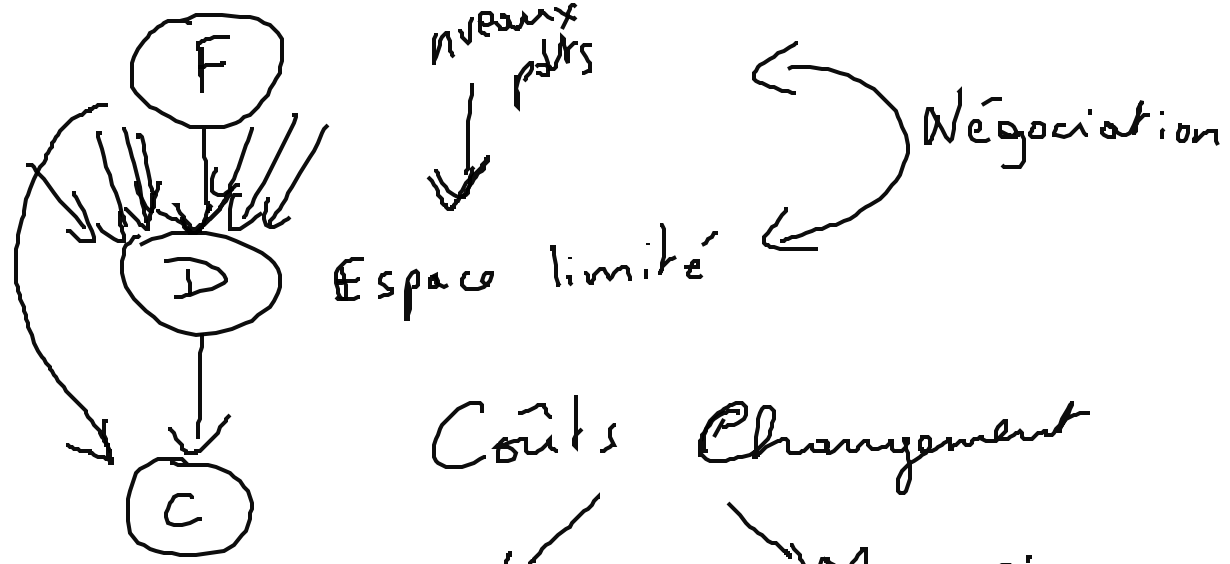 F
nveaux
pdts
Négociation
D
Espace limité
Coûts Changement
C